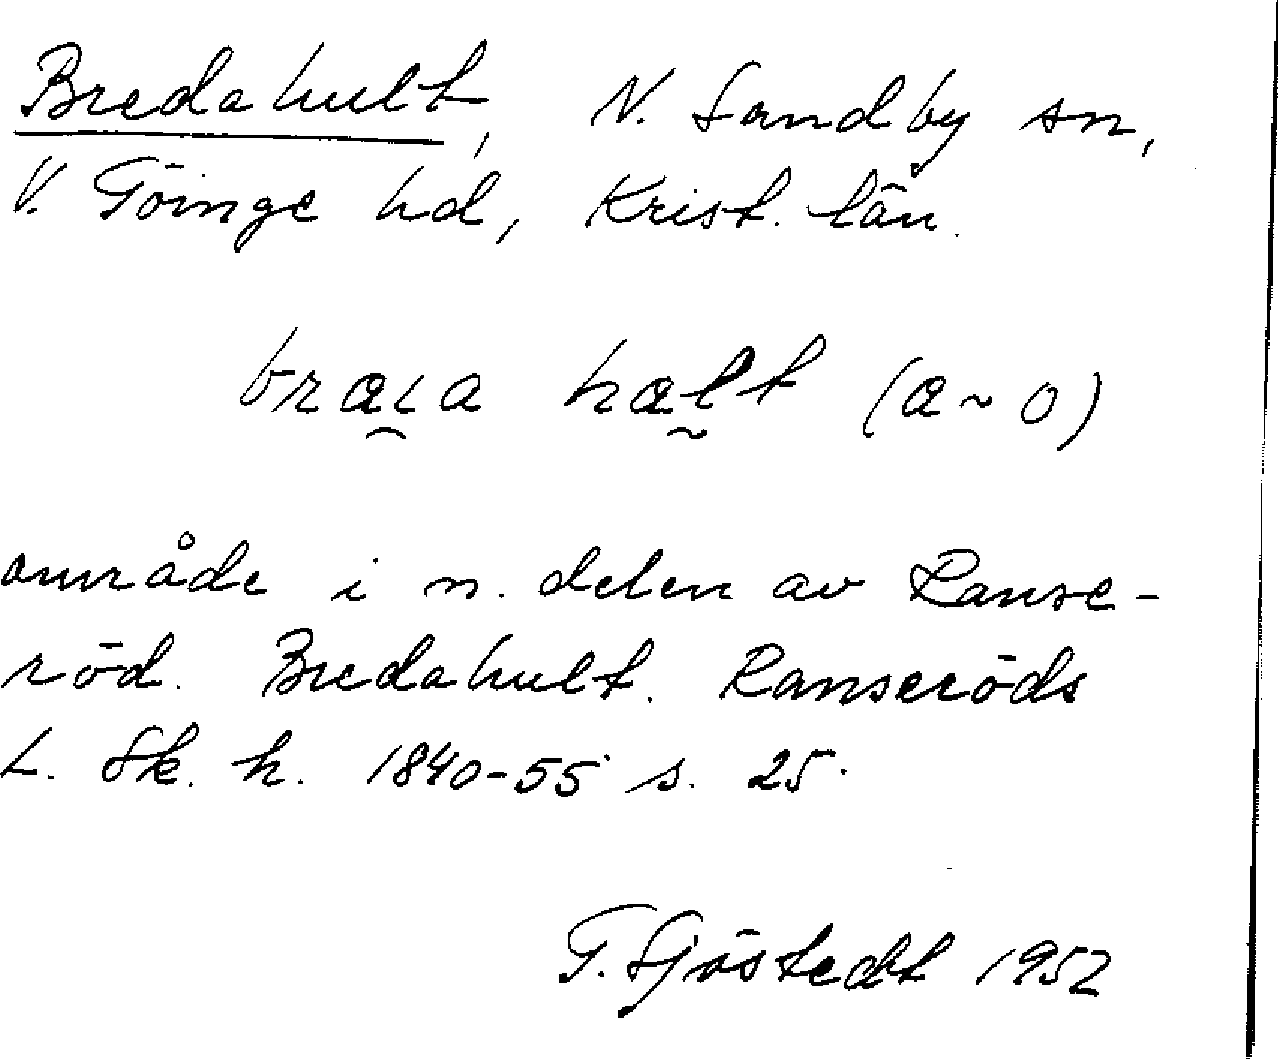 Bredahult, N. Sandby sn,
V. Göinge hd, Krist. län.
område i n. delen av Ranse-
röd. Bredahult. Ranseröds
L. Sk. h. 1840-55 s. 25.
G. Sjöstedt 1952